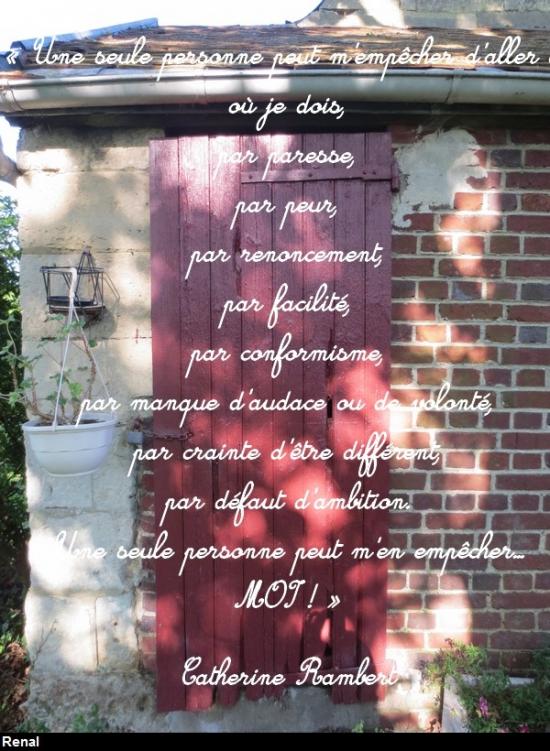 « Une seule personne peut m'empêcher d'aller
où je dois,
par paresse,
par peur,
par renoncement,
par facilité,
par conformisme,
par manque d'audace ou de volonté,
par crainte d'être différent,
par défaut d'ambition.
Une seule personne peut m'en empêcher...
MOI ! »
Catherine Rambert
Renal